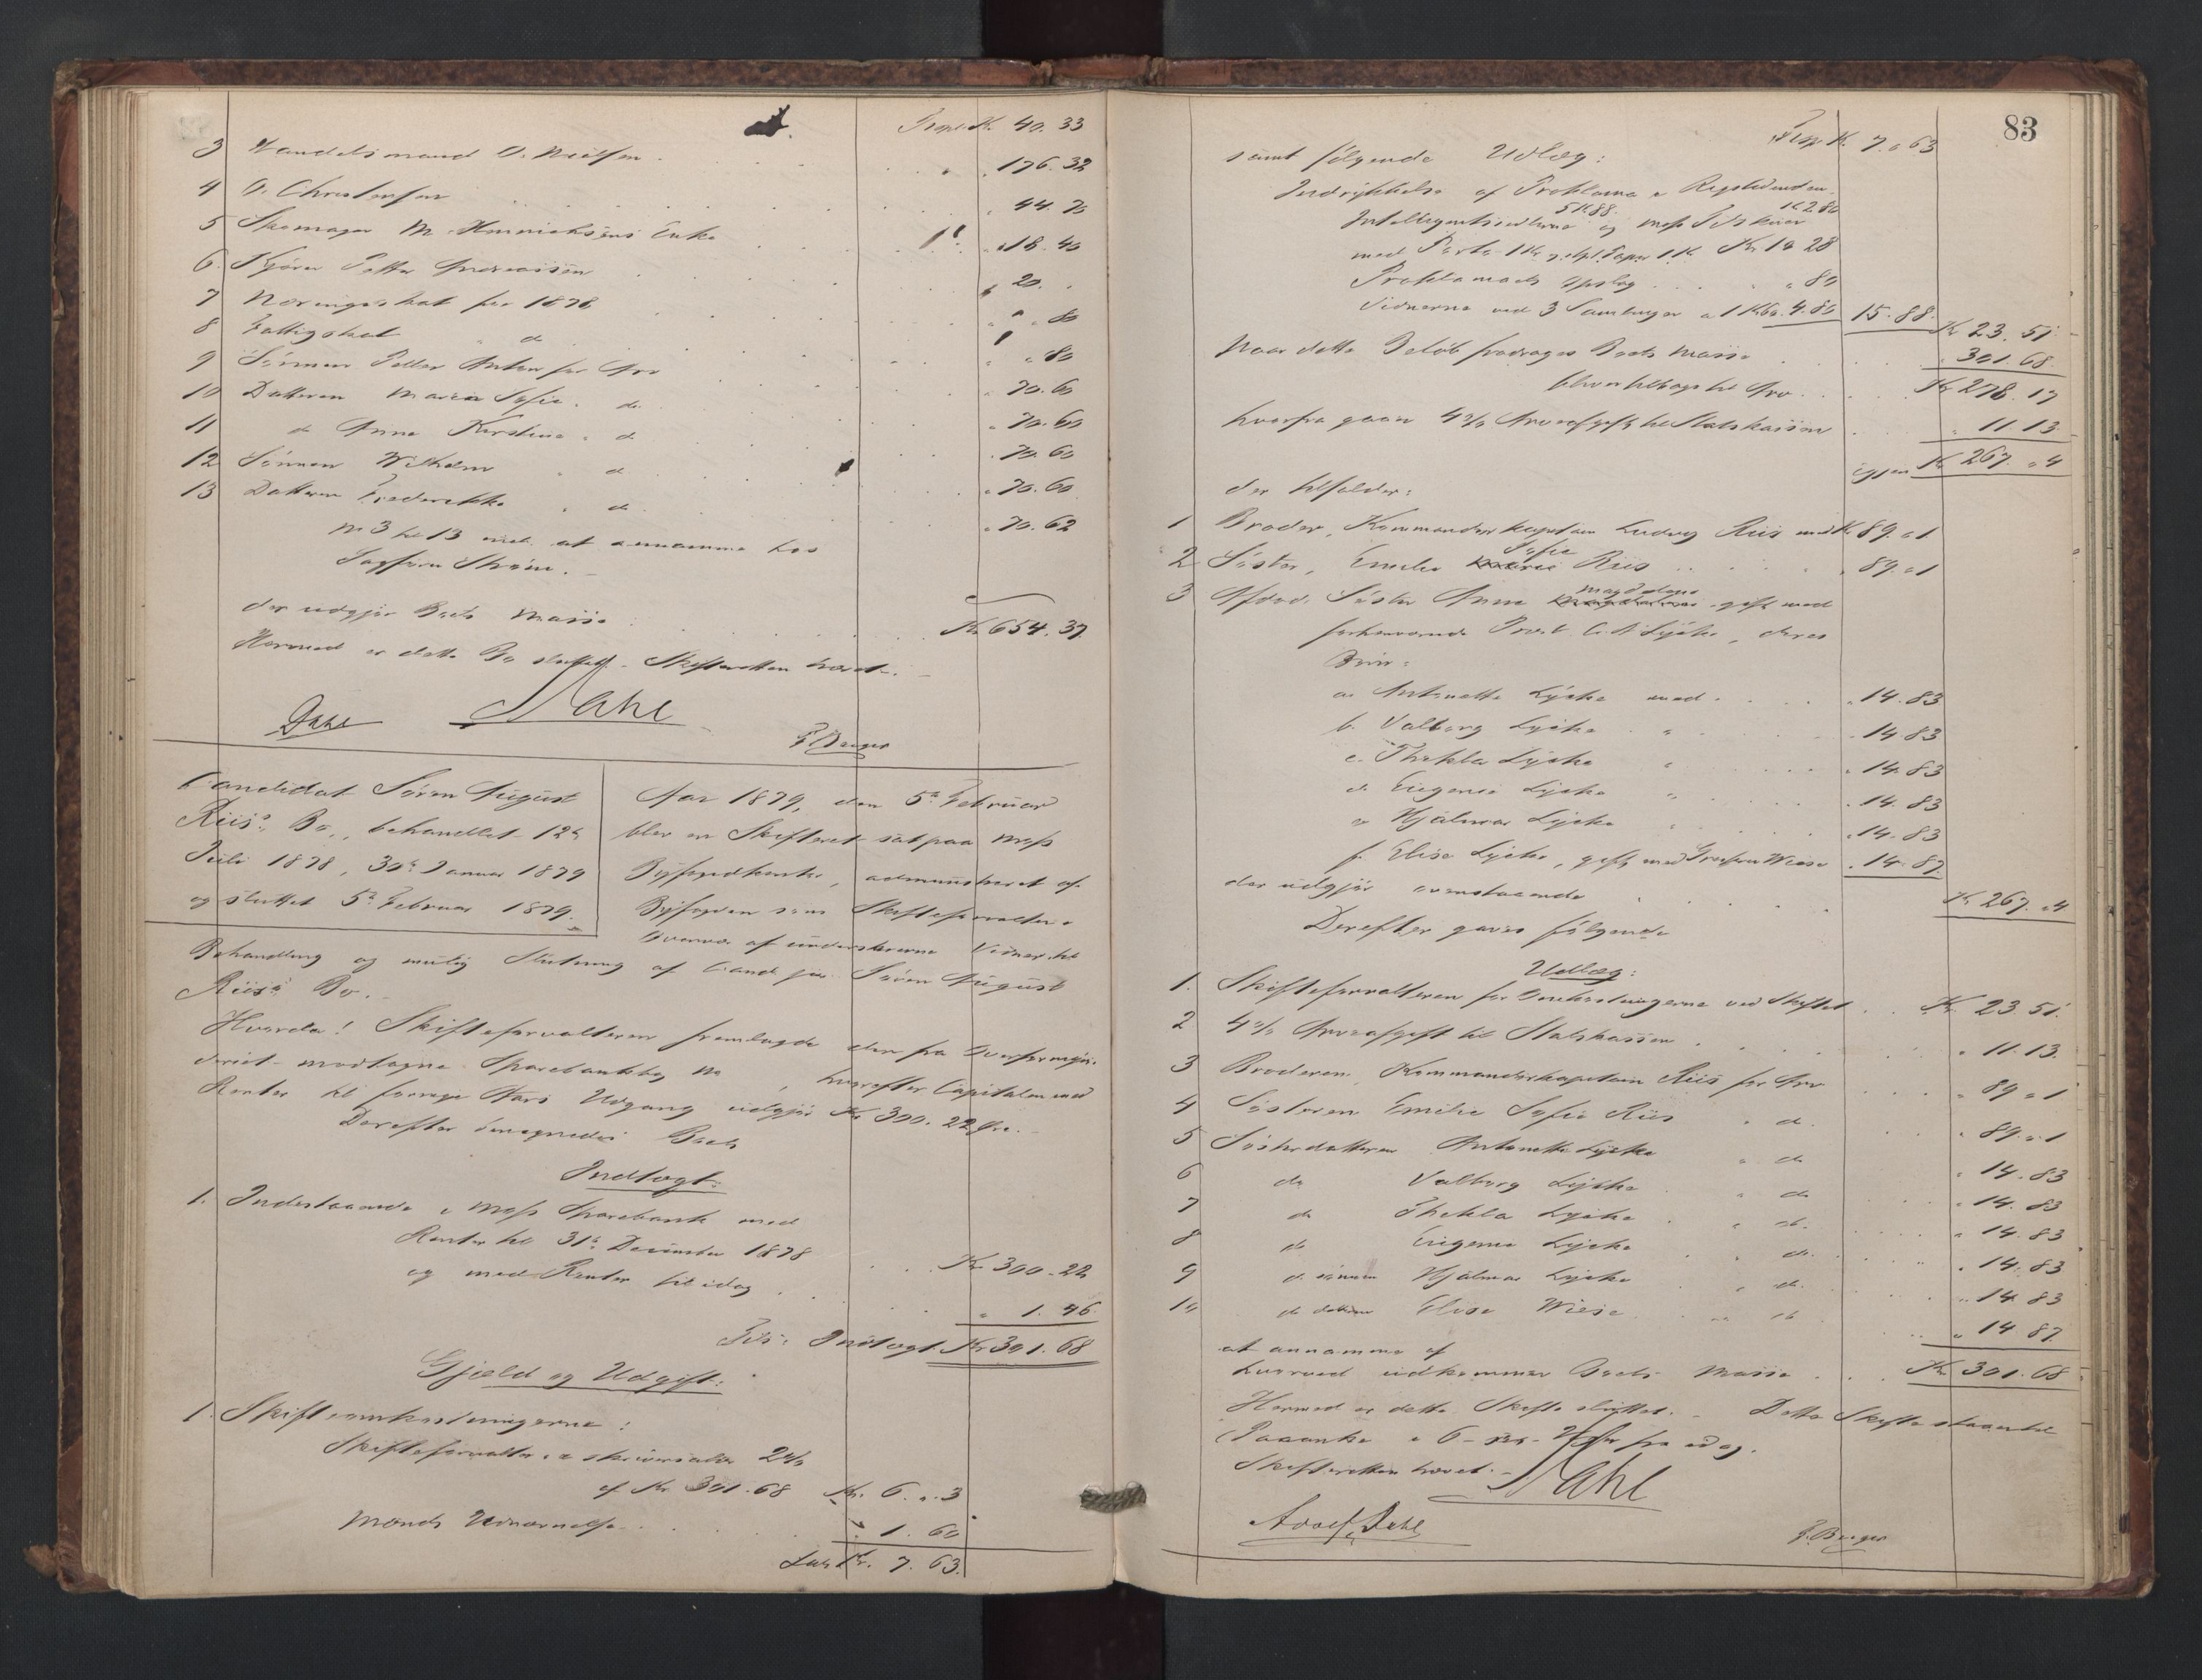 Transp. Kr. 40. 33
3 Handelsmand O. Nielsen . . . " 176. 32
4 O. Christensen . . . " 44. 70
5 Skomager M. Henrichsens Enke . . . " 18. 40
6. Petter Andreassen . . . " 20. "
7 Næringsskat for 1878 . . . " " 80
8 Fattigskat " do . . . " " 80
9 Sønnen Petter Anton for Arv . . . " 70. 60
10 Datteren Maren Sofie " do. . . . " 70. 60
11 do Anna Kirstine " do . . . " 70. 60
12 Sønnen Wilhelm " do . . . " 70. 60
13 Datteren Frederikke " do. . . . " 70. 62
No 3 til 13 incl. at annamme hos
Sagfører Strøm. –
der udgjør Boets Masse . . . Kr 654. 37
Hermed er dette Bo sluttet. – Skifteretten hævet. –
Dahl
Dahl
F. Berger
Candidat Søren August
Riis's Bo, behandlet 12te
Juli 1878, 30te Januar 1879
og sluttet 5te Februar 1879.
Aar 1879, den 5te Februar
blev en Skifteret sat paa Moss
Byfogedkontor, administreret af
Byfogden som Skifteforvalter i
Overvær af underskrevne Vidner til
Behandling og mulig Slutning af Cand. jur. Søren August
Riis's Bo. –
Hvorda: Skifteforvalteren fremlagde den fra Overformyn-
deriet modtagne Sparebankbog No , hvorefter Capitalen med
Renter til forrige Aars Udgang udgjør Kr 300. 22 Øre. –
Derefter beregnedes Boets
Indtægt:
1. Indestaaende i Moss Sparebank med
Renter til 31te December 1878 . . . Kr 300. 22
og med Renter til idag . . . " 1. 46
Tils. Indtægt Kr 301. 68
Gjæld og Udgift:
1. Skifteomkostningerne:
Skifteforvalter- & skriversalær 2%
af Kr. 301. 68 Kr. 6. " 3
Mænds Udnævnelse . . . " 1. 60
Lat. Kr. 7. 63.
83
Transp. Kr. 7. 63
samt følgende Udlæg:
Indrykkelse af Proklama i Rigstidenden
5 K 88. 1 K 280
Intelligentssedlerne og Moss Tilskuer
med Porto 1 Kr, stpl. Papir 1 Kr Kr 10 28
Proklamaets Opslag . . . " 80
Vidnerne ved 3 Samlinger a 1 K 60. 4. 80 15. 88. Kr 23. 51
Naar dette Beløb fradrages Boets Masse . . . " 301. 68
bliver tilbage til Arv . . . Kr 278. 17
hvorfra gaar 4% Arveafgift til Statskassen . . . " 11. 13
igjen Kr 267. " 4
der tilfalder:
1 Broder, Kommandørkaptein Ludvig Riis med Kr 89. " 1
Sofie
2 Søster, Emilie Riis . . . " 89. " 1
Magdalena
3 Afdød Søster Anna gift med
forhenværende Provst Lycke, deres
Børn:
a. Antonette Lycke med . . . " 14. 83
b. Valborg Lycke " . . . " 14. 83
c. Thekla Lycke " . . . " 14. 83
d. Eugenie Lycke " . . . " 14. 83
e. Hjalmar Lycke " . . . " 14. 83
f. Elise Lycke, gift med Wiese . 14. 87.
der udgjør ovenstaaende . . . Kr 267. " 4
Derefter gaves følgende
Udlæg:
1. Skifteforvalteren for Omkostningerne ved Skiftet . . Kr. 23. 51.
2 4% Arveafgift til Statskassen . . . " 11. 13.
3 Broderen, Kommandørkaptein Riis for Arv . . . " 89 " 1
4 Søsteren Emilie Sofie Riis " do. . . . " 89. " 1
5 Søsterdatteren Antonette Lycke " do . . . " 14. 83
6 do Valborg Lycke " do . . . " 14. 83
7 do Thekla Lycke . " do. . . . " 14. 83
8 do Eugenie Lycke " do. . . . " 14. 83
9 do sønnen Hjalmar Lycke " do. . . . " 14. 83
10 do datteren Elise Wiese " do . . . " 14 87.
at annamme af
hvorved udkommer Boets Masse . . . Kr 301. 68
Hermed er dette Skifte sluttet. – Dette Skifte staar til
Paaanke i 6 – sex – Uger fra idag.
Skifteretten hævet. –
Dahl
Adolf Dahl
F. Berger